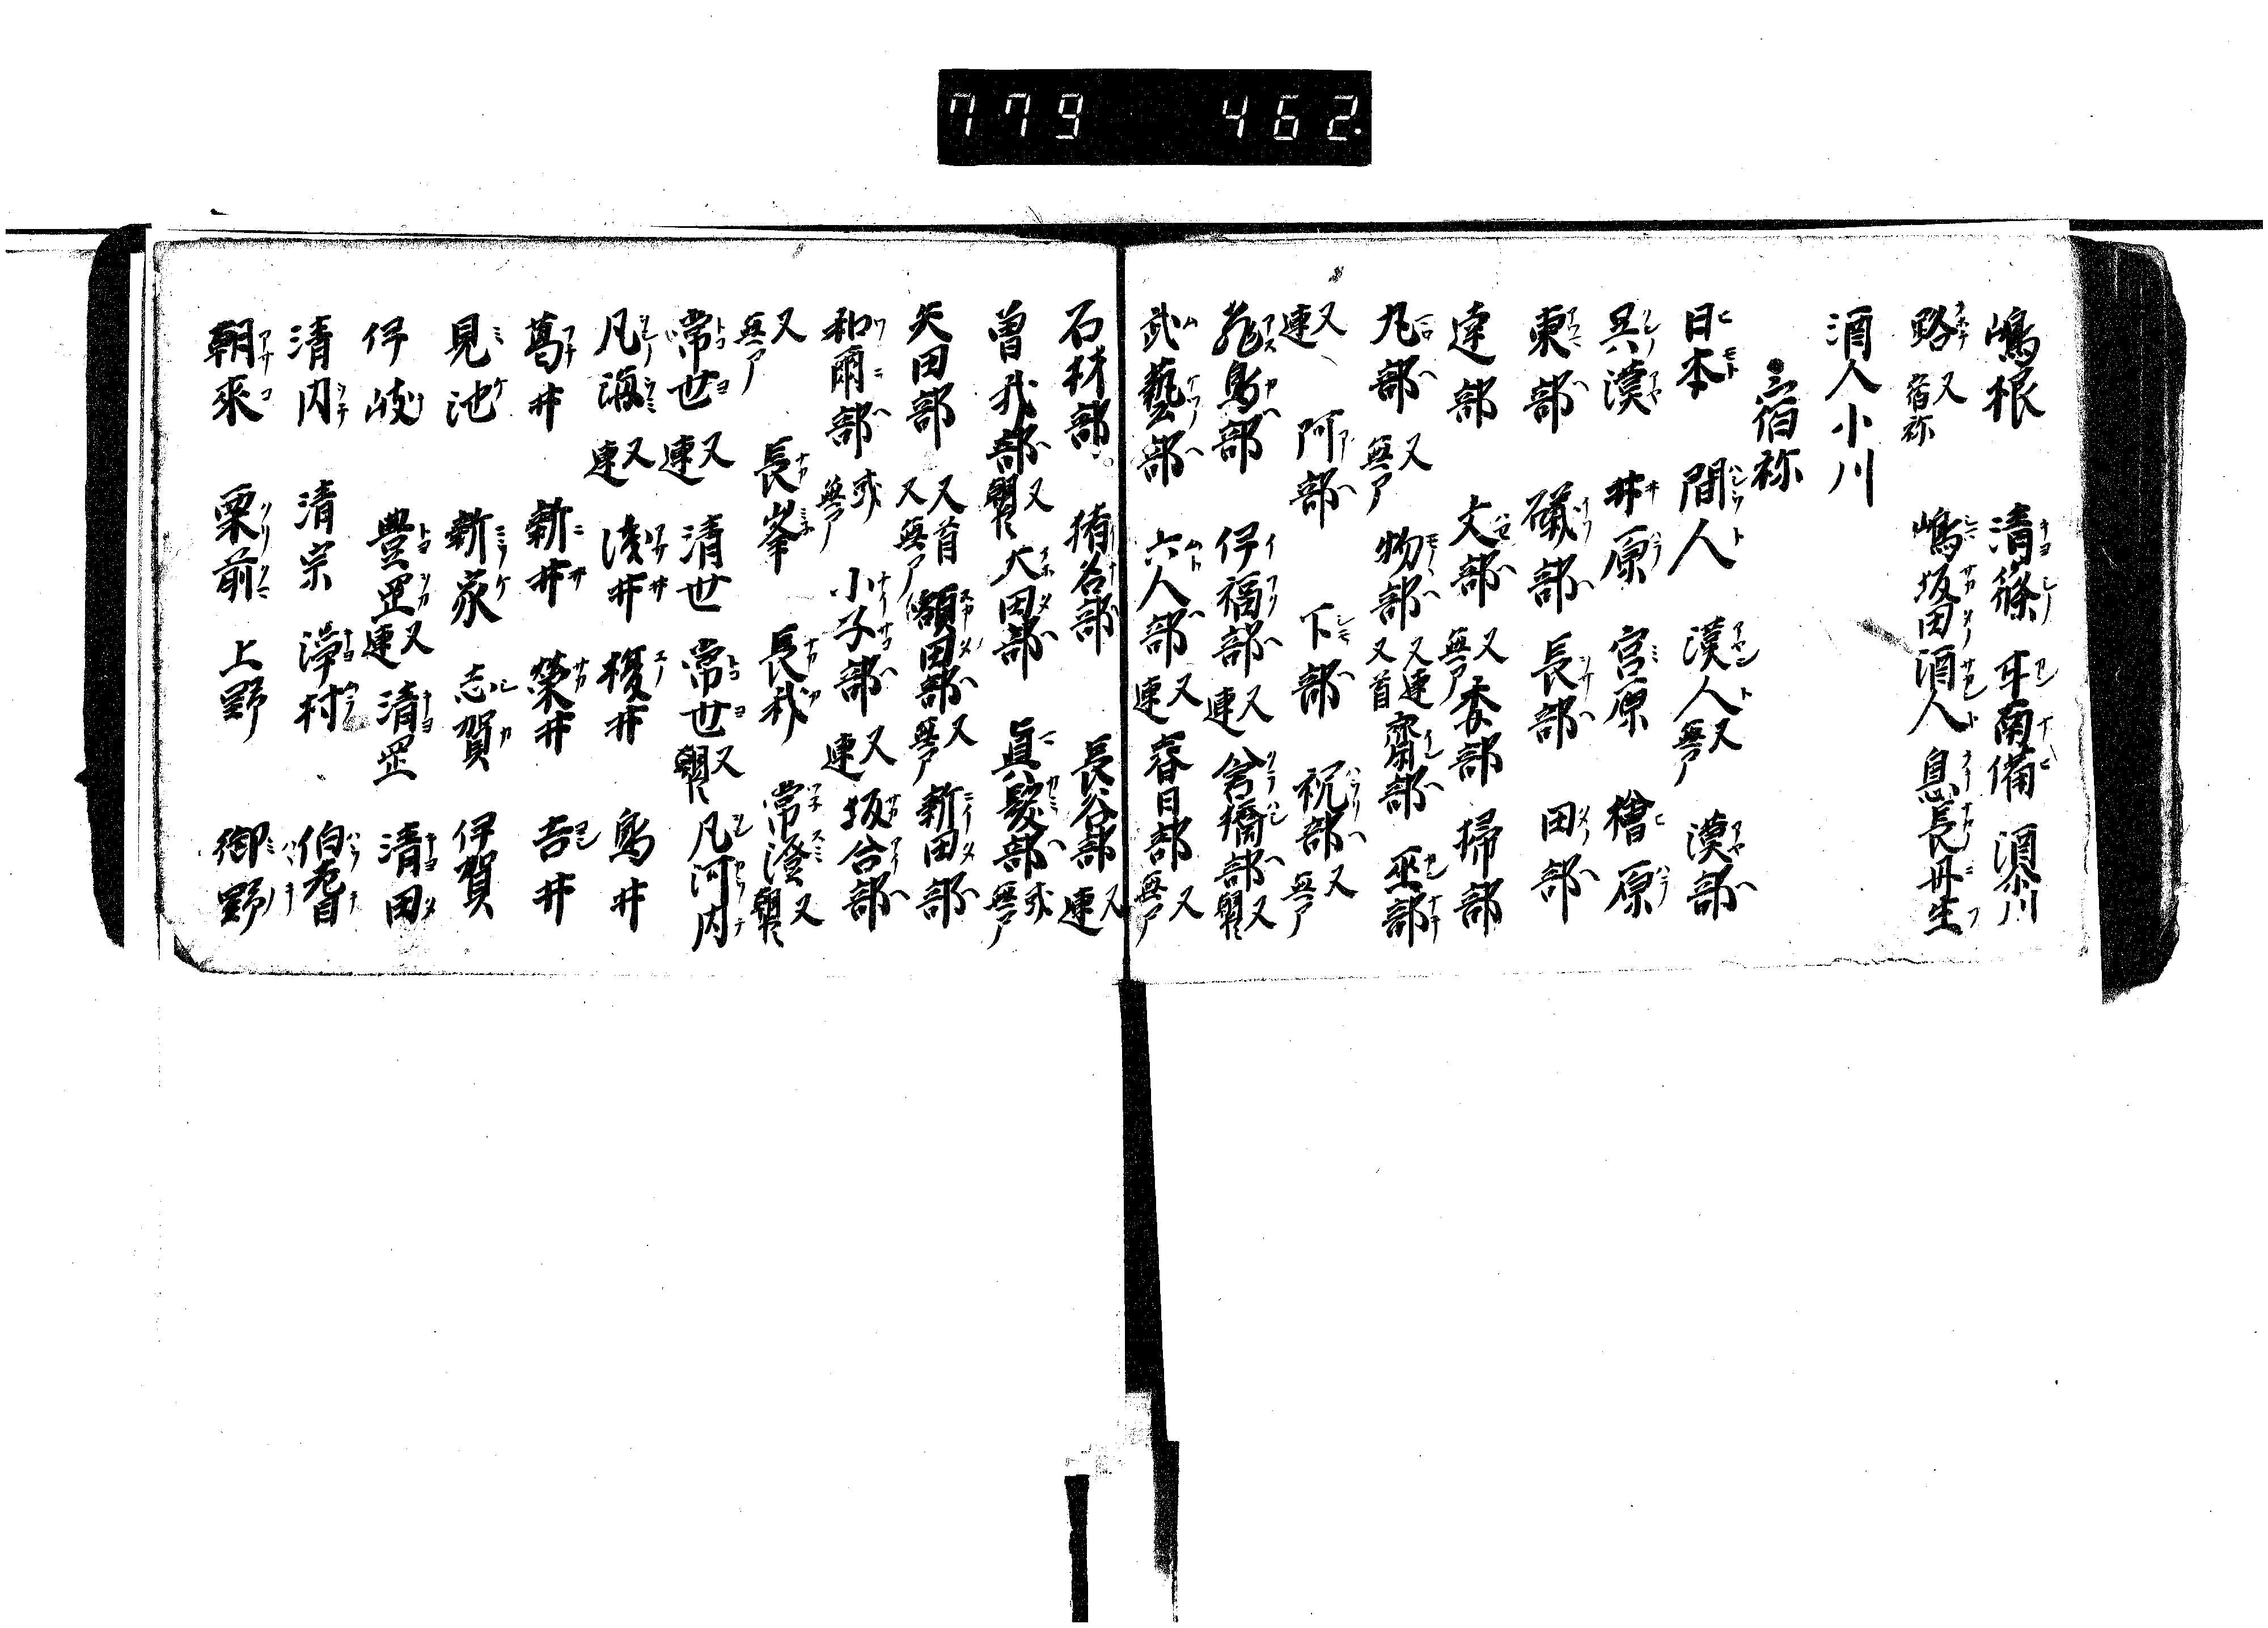 779 462
嶋根 清篠 甘南備 須川
路 又宿祢 嶋坂田酒人 息長丹生
酒人小川
宿祢
日本 間人 漢人 又無尸 漢部
呉漢 井原 宮原 檜原
東部 礒部 長部 田部
達部 丈部 又無尸 委部 掃部
丸部 又無尸 物部 又連又首 齋部 巫部
又連 阿部 下部 祝部 又無尸
飛鳥部 伊福部 又連 倉橋部
武藝部 六人部 又連 春日部 又無尸
石材部 猪名部 長谷部 又連
曽我部 大田部 眞髪部 或無尸
矢田部 又首又無尸 額田部 又無尸 新田部
和爾部 或無尸 小子部 又連 坂合部
又無尸 長峯 長我 常澄
常世 又連 清世 常世 凡河内
凡海 又連 浅井 榎井 鳥井
葛井 新井 榮井 吉井
見池 新家 志賀 伊賀
伊岐 豊罡 又連 清罡 清田
清内 清宗 浄村 伯耆
朝來 栗前 上野 御野